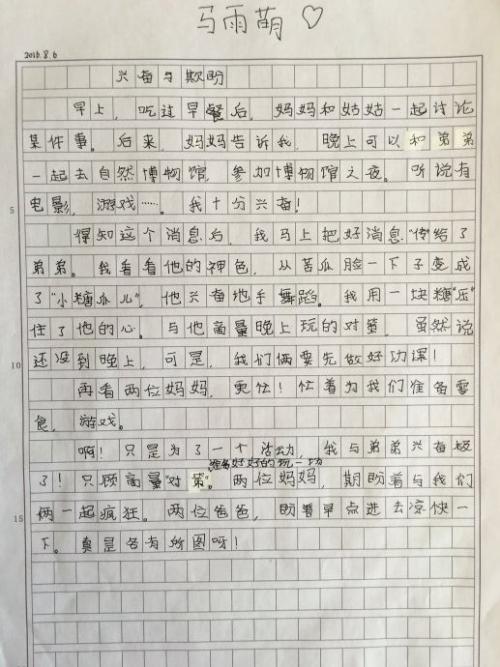 马雨萌♡
2016.8.6
兴奋与期盼
早上，吃过早餐后，妈妈和姑姑一起讨论
某件事。后来，妈妈告诉我，晚上可以和弟弟
一起去自然博物馆，参加博物馆之夜。听说有
电影，游戏……。我十分兴奋！
5
得知这个消息后，我马上把好消息“传”给了
弟弟。我看看他的神色，从苦瓜脸一下子变成
了“小糖瓜儿”，他兴奋地手舞蹈。我用一块糖“压”
住了他的心。与他商量晚上玩的对策，虽然说
还没到晚上，可是，我们俩要先做好功课！
10
再看两位妈妈，更忙！忙着为我们准备零
食，游戏。
啊！只是为了一个活动，我与弟弟兴奋极
准备好好的玩一场
了！只顾商量“对策”。两位妈妈，期盼着与我们
俩一起疯狂。两位爸爸，盼着早点进去凉快一
15
下。真是各有所图呀！